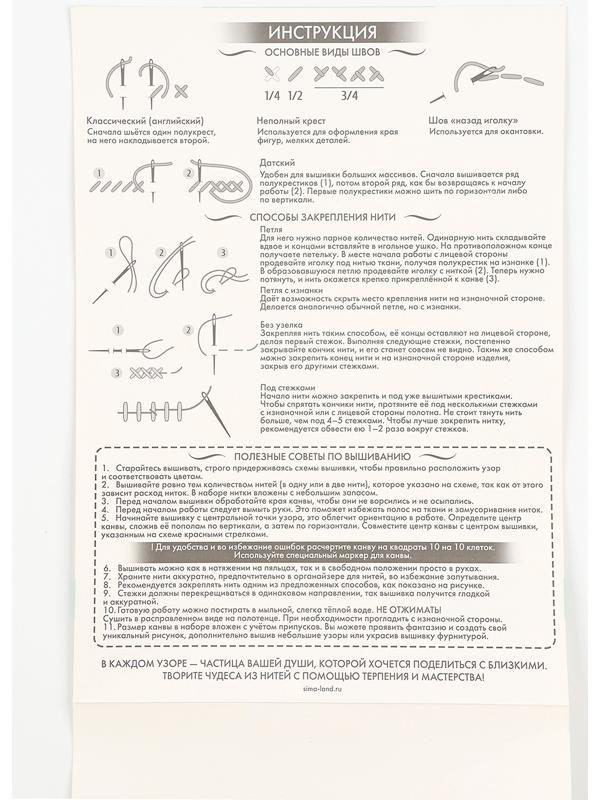 ИНСТРУКЦИЯ
ОСНОВНЫЕ ВИДЫ ШВОВ
1/4 1/2 3/4
Классический (английский)
Сначала шьётся один полукрест,
на него накладывается второй.
Неполный крест
Используется для оформления края
фигур, мелких деталей.
Шов «назад иголку»
Используется для окантовки.
1 2
Датский
Удобен для вышивки больших массивов. Сначала вышивается ряд
полукрестиков (1), потом второй ряд, как бы возвращаясь к началу
работы (2). Первые полукрестики можно шить по горизонтали либо
по вертикали.
СПОСОБЫ ЗАКРЕПЛЕНИЯ НИТИ
1 2 3
Петля
Для него нужно парное количество нитей. Одинарную нить складывайте
вдвое и концами вставляйте в игольное ушко. На противоположном конце
получаете петельку. В месте начала работы с лицевой стороны
продевайте иголку под нитью ткани, получая полукрестик на изнанке (1).
В образовавшуюся петлю продевайте иголку с ниткой (2). Теперь нужно
потянуть, и нить окажется крепко прикреплённой к канве (3).
Петля с изнанки
Даёт возможность скрыть место крепления нити на изнаночной стороне.
Делается аналогично обычной петле, но с изнанки.
1 2
3
Без узелка
Закрепляя нить таким способом, её концы оставляют на лицевой стороне,
делая первый стежок. Выполняя следующие стежки, постепенно
закрывайте кончик нити, и его станет совсем не видно. Таким же способом
можно закрепить конец нити и на изнаночной стороне изделия,
закрыв его другими стежками.
Под стежками
Начало нити можно закрепить и под уже вышитыми крестиками.
Чтобы спрятать кончики нити, протяните её под несколькими стежками
с изнаночной или с лицевой стороны полотна. Не стоит тянуть нить
больше, чем под 4–5 стежками. Чтобы лучше закрепить нитку,
рекомендуется обвести ею 1–2 раза вокруг стежков.
ПОЛЕЗНЫЕ СОВЕТЫ ПО ВЫШИВАНИЮ
1. Старайтесь вышивать, строго придерживаясь схемы вышивки, чтобы правильно расположить узор
и соответствовать цветам.
2. Вышивайте ровно тем количеством нитей (в одну или в две нити), которое указано на схеме, так как от этого
зависит расход ниток. В наборе нитки вложены с небольшим запасом.
3. Перед началом вышивки обработайте края канвы, чтобы они не ворсились и не осыпались.
4. Перед началом работы следует вымыть руки. Это поможет избежать полос на ткани и замусоривания ниток.
5. Начинайте вышивку с центральной точки узора, это облегчит ориентацию в работе. Определите центр
канвы, сложив её пополам по вертикали, а затем по горизонтали. Совместите центр канвы с центром вышивки,
указанным на схеме красными стрелками.
! Для удобства и во избежание ошибок расчертите канву на квадраты 10 на 10 клеток.
Используйте специальный маркер для канвы.
6. Вышивать можно как в натяжении на пяльцах, так и в свободном положении просто в руках.
7. Храните нити аккуратно, предпочтительно в органайзере для нитей, во избежание запутывания.
8. Рекомендуется закреплять нить одним из предложенных способов, как показано на рисунке.
9. Стежки должны перекрещиваться в одинаковом направлении, так вышивка получится гладкой
и аккуратной.
10. Готовую работу можно постирать в мыльной, слегка тёплой воде. НЕ ОТЖИМАТЬ!
Сушить в расправленном виде на полотенце. При необходимости прогладить с изнаночной стороны.
11. Размер канвы в наборе вложен с учётом припусков. Вы можете проявить фантазию и создать свой
уникальный рисунок, дополнительно вышив небольшие узоры или украсив вышивку фурнитурой.
В КАЖДОМ УЗОРЕ — ЧАСТИЦА ВАШЕЙ ДУШИ, КОТОРОЙ ХОЧЕТСЯ ПОДЕЛИТЬСЯ С БЛИЗКИМИ.
ТВОРИТЕ ЧУДЕСА ИЗ НИТЕЙ С ПОМОЩЬЮ ТЕРПЕНИЯ И МАСТЕРСТВА!
sima-land.ru